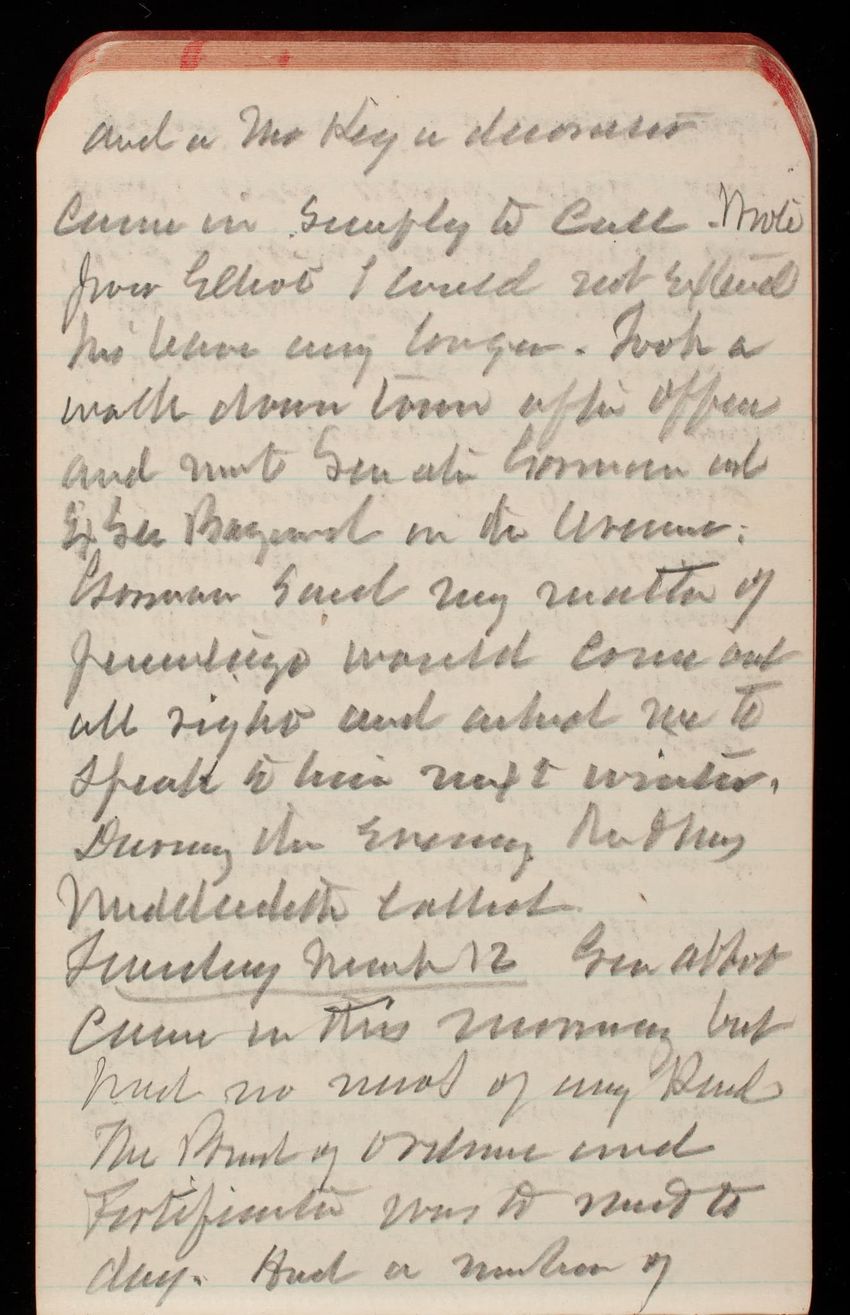 and a Mr Key a decorator
Came in simply to call. Wrote
from Elliot I could not extend
his leave any longer. Took a
walk down town after office
and met Senator Gorman and
Ex Sec Bayard on the Avenue.
Gorman said my matter of
would come out
all right and asked me to
speak to him next winter.
During the Evening
called
Sunday March 12 Gen Abbot
Came in this morning but
had no news of any Kind
The Board of Ordnance and
Fortification was to meet to
day. Had a number of